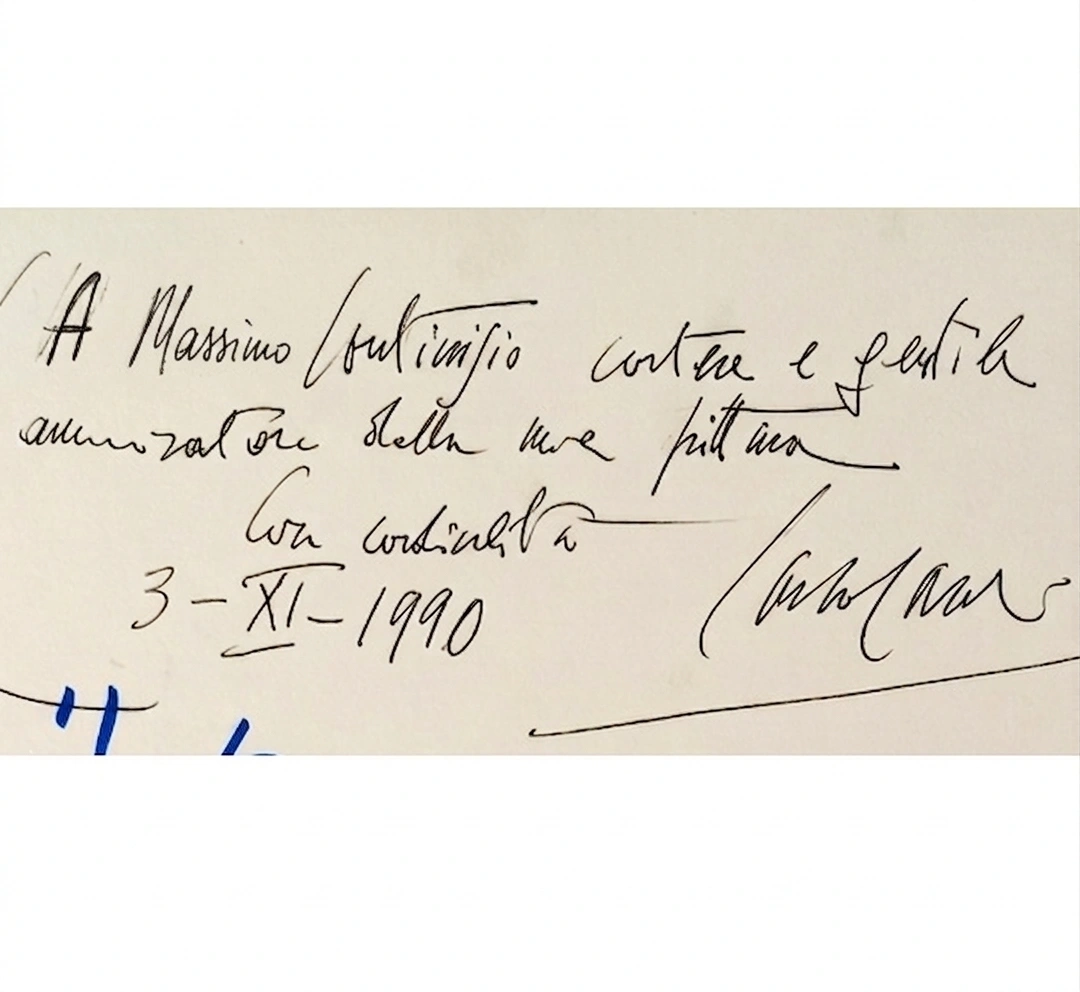 A Massimo cortese e gentile
ammiratore della mia pittura
Con cordialità
3-XI-1990